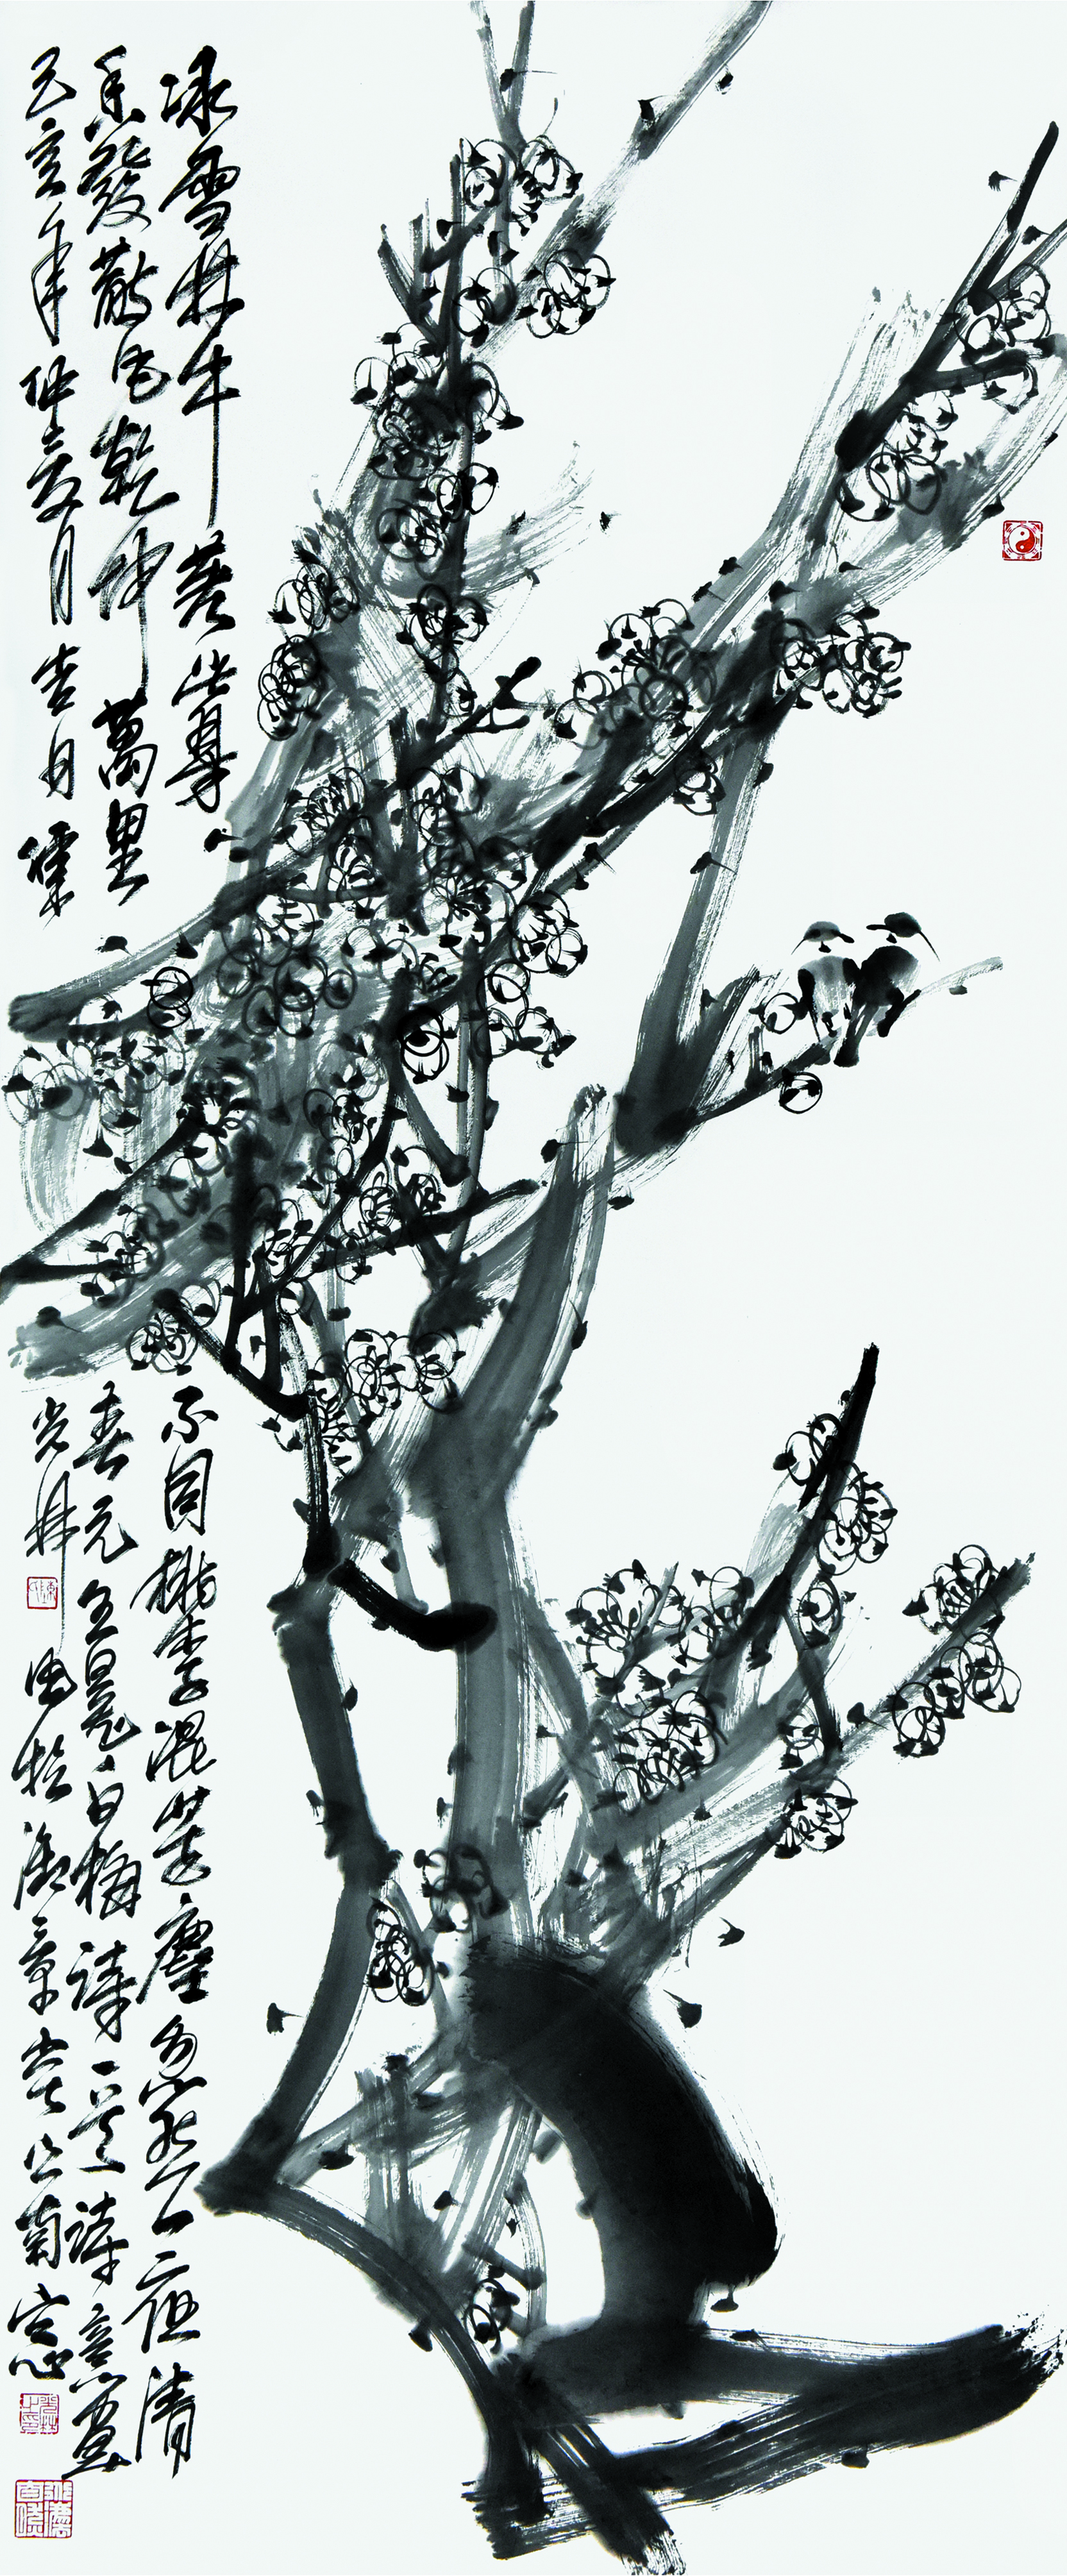 冰雪林中著此身不同桃李混芳塵忽然一夜清
香發散作乾坤萬里春元王冕白梅詩一首詩意畫
己亥年仲夏月吉日儒光林